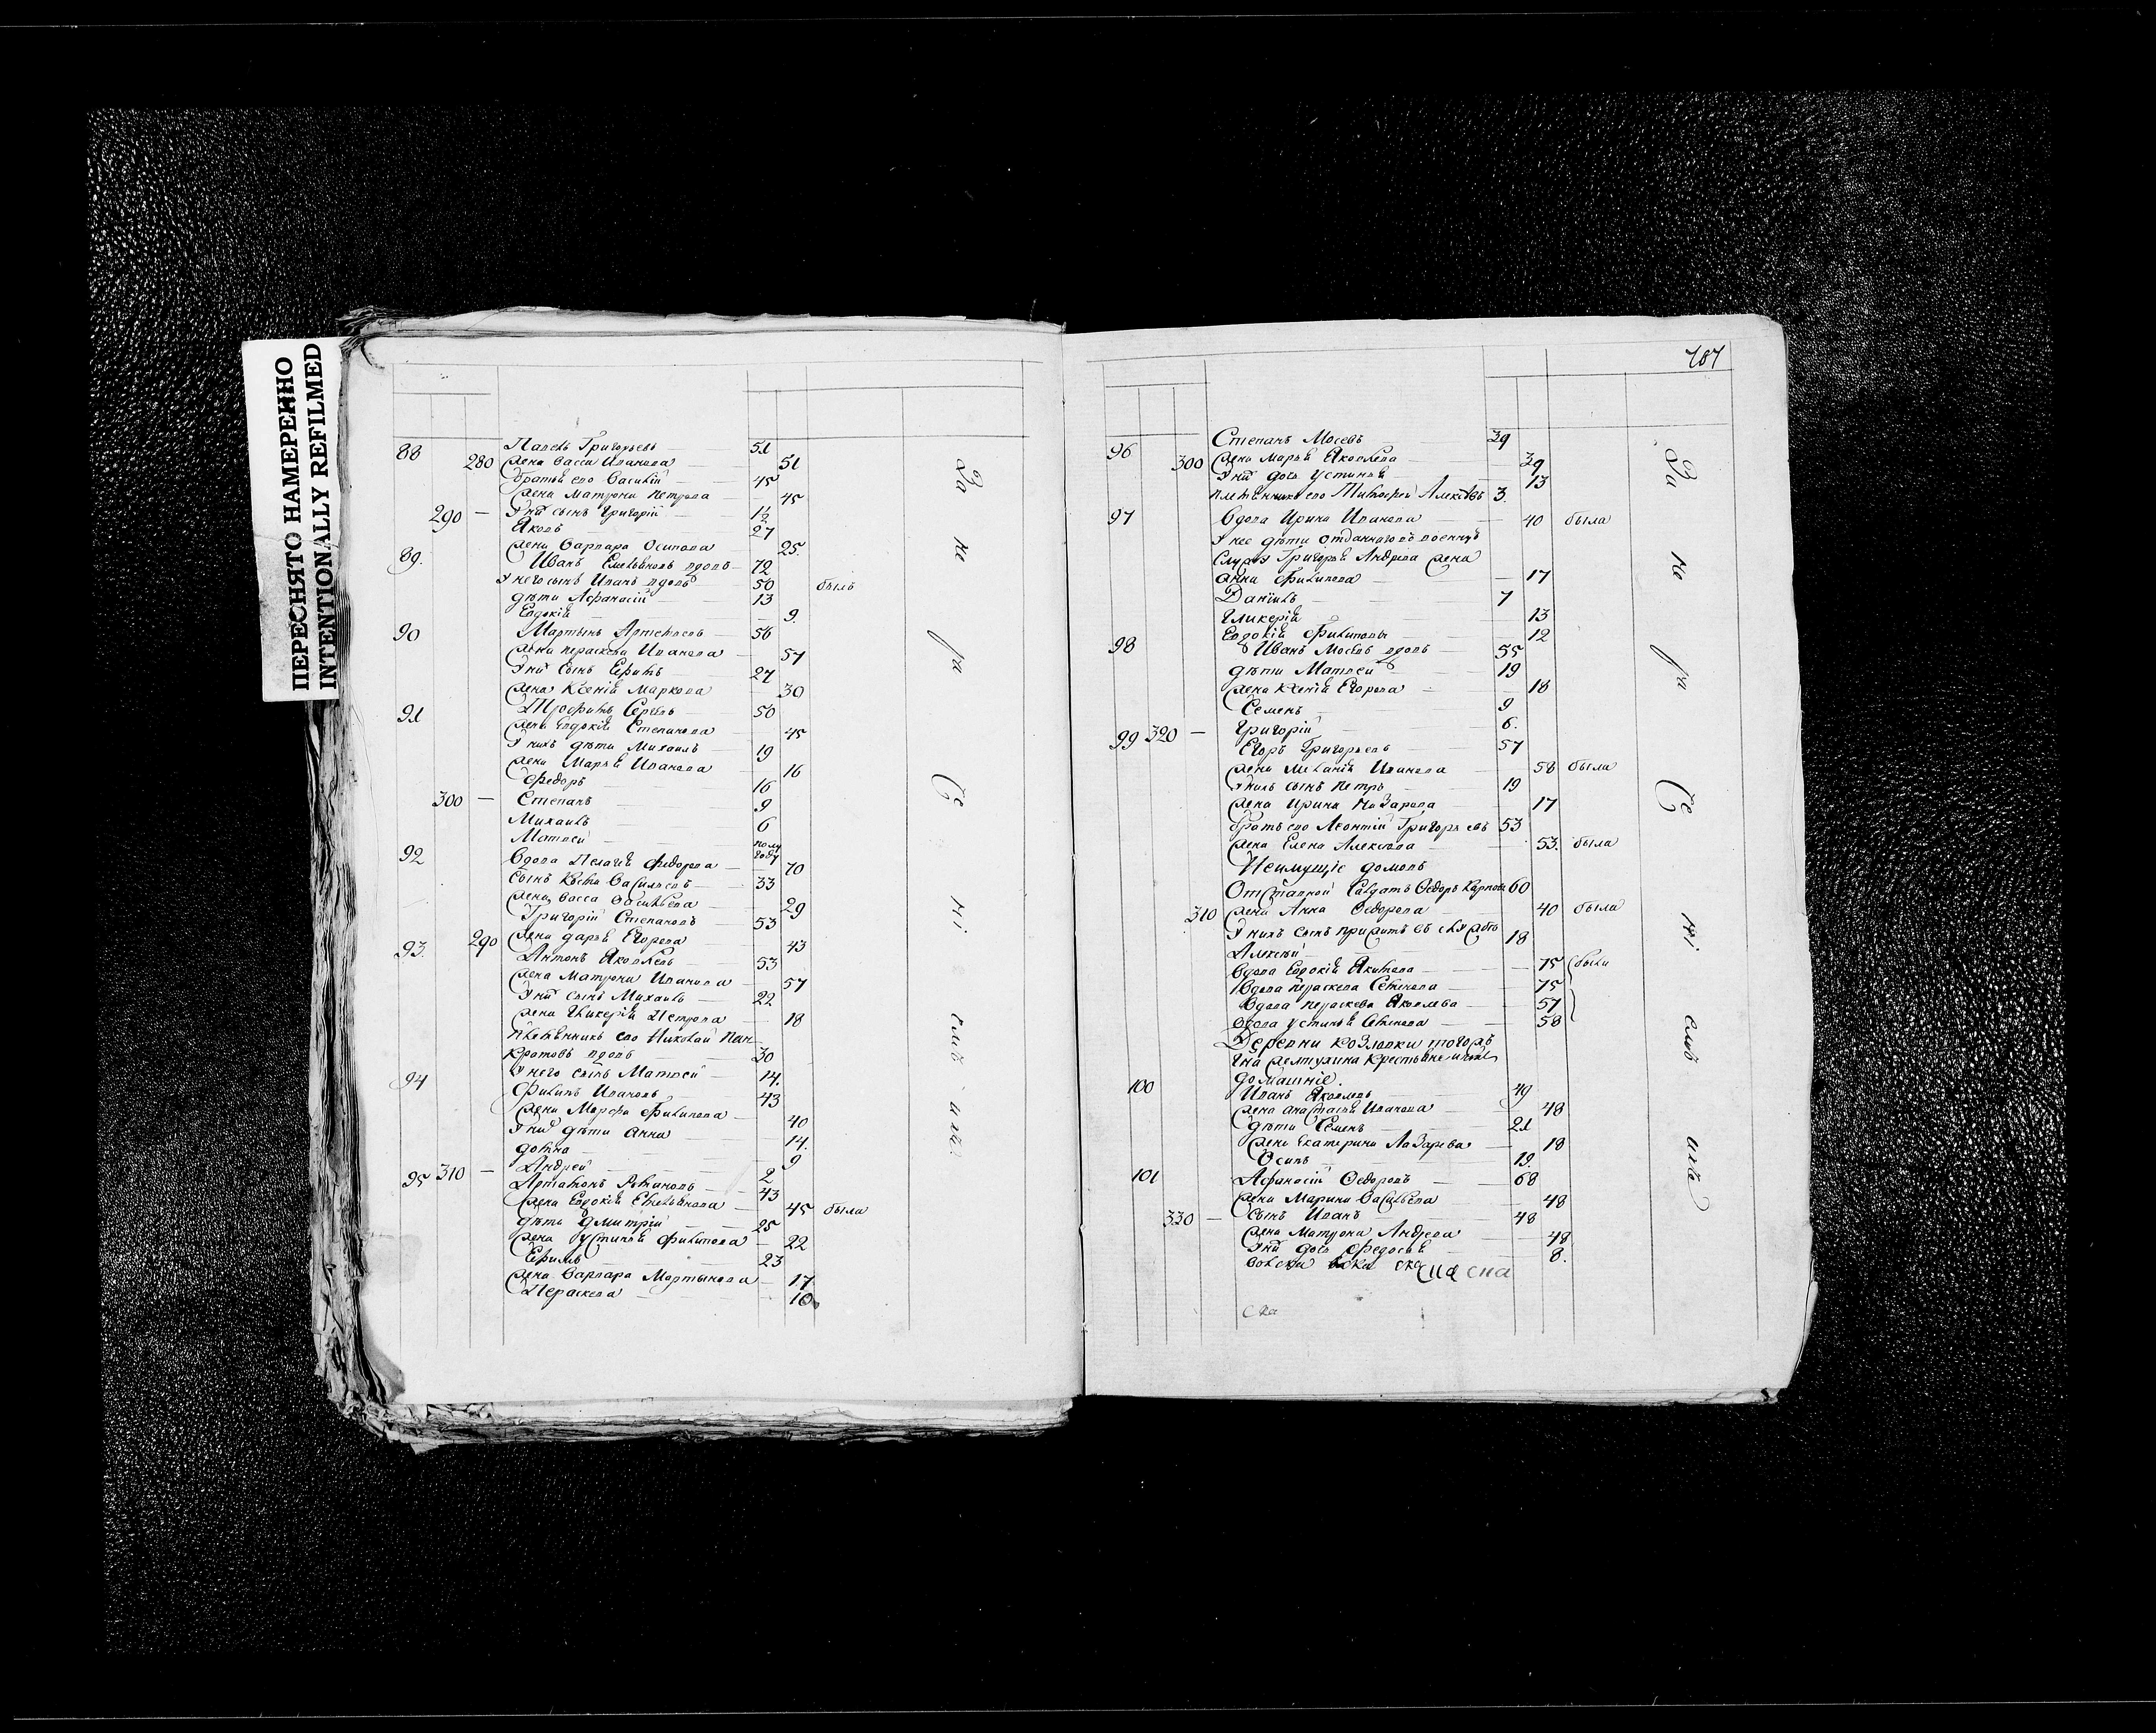 ПЕРЕСНЯТО НАМЕРЕННО
INTENTIONALLY REFILMED
88 Павелъ Григорьевъ 51
280 жена Васса Иванова 51
братъ его Василій 45
жена Матрона Петрова 45
290 — у нихъ сынъ Григорій 1½
Яковъ 27
жена Варвара Осипова 25.
89. Иванъ Емельяновъ вдовъ 72
у него сынъ Иванъ вдовъ 50 былъ
дѣти Афанасій 13
Евдокія 9.
90 Мартынъ Артемьевъ 56
жена Параскева Иванова 57
у нихъ сынъ Ефимъ 27
жена Ксенія Маркова 30
91 Трофимъ Сергѣевъ 50
жена Евдокія Степанова 45
у нихъ дѣти Михаилъ 19
жена Марья Иванова 16
Федоръ 16
300 — Степанъ 9
Михаилъ 6
Матвей полу году
92 вдова Пелагея Федорова 70
сынъ Васильевъ 33
жена Васса Васильева 29
Григорій Степановъ 53
290 жена Дарья Егорова 43
93. Антонъ Яковлевъ 53
жена Матрона Иванова 57
у нихъ сынъ Михаилъ 22
жена Гликерія Петрова 18
племянникъ его Николай Пан
кратовъ вдовъ 30
у него сынъ Матвей 14.
94 Филипъ Ивановъ 43
жена Марфа Филипова 40
у нихъ дѣти Анна 14.
Домна 9
Андрей 2
95 310 — Артамонъ 43
жена Евдокія Емельянова 45 была
дѣти Дмитрій 25
жена Устинья Филипова 22
Ефимъ 23
жена Варвара Мартынова 17
Параскева 10
За не ра
Се ні емъ ихъ.
707
96 Степанъ Мосевъ 39
300 жена Марья Яковлева 39
у нихъ дочь Устинья 13
племянникъ его Тимофей Алексѣевъ 3.
97 вдова Ирина Иванова 40 была
у нее дѣти отданнаго въ военную
службу Григорья Андреева жена
Анна Филипова 17
Данилъ 7
Гликерія 13
Евдокія Филиповы 12
98 Иванъ Мосевъ вдовъ 55
дѣти Матвей 19
жена Ксенія Егорова 18
Семенъ 9
Григорій 6.
99 320 — Егоръ Григорьевъ 57
жена Меланія Иванова 58 была
у нихъ сынъ Петръ 19
жена Ирина Назарова 17
братъ его Леонтій Григорьевъ 53
жена Елена Алексѣева 53. была
Неимущіе домовъ
Отставной салдатъ Ѳедоръ Карповъ 60
310 жена Анна Ѳедорова 40 была
у нихъ сынъ
Алексѣй 18
вдова Евдокія Якимова 75 были
вдова Параскева Семенова 75
вдова Параскева Яковлева 57
вдова Устинья 58
Деревни Козловки тогожъ
Гна Желтухина крестьяне и ихъ
домашніе.
100 Иванъ Яковлевъ 49
жена Анастасья Иванова 48
дѣти Семенъ 21
жена Екатерина Лазарева 18
Осипъ 19.
101 Афанасій Ѳедоровъ 68
жена Марина Васильева 48
330 — сынъ Иванъ 48
жена Матрона Андреева 48
у нихъ дочь Федосья 8.
ска сна сна
Ска
За не ра
Се ні емъ ихъ